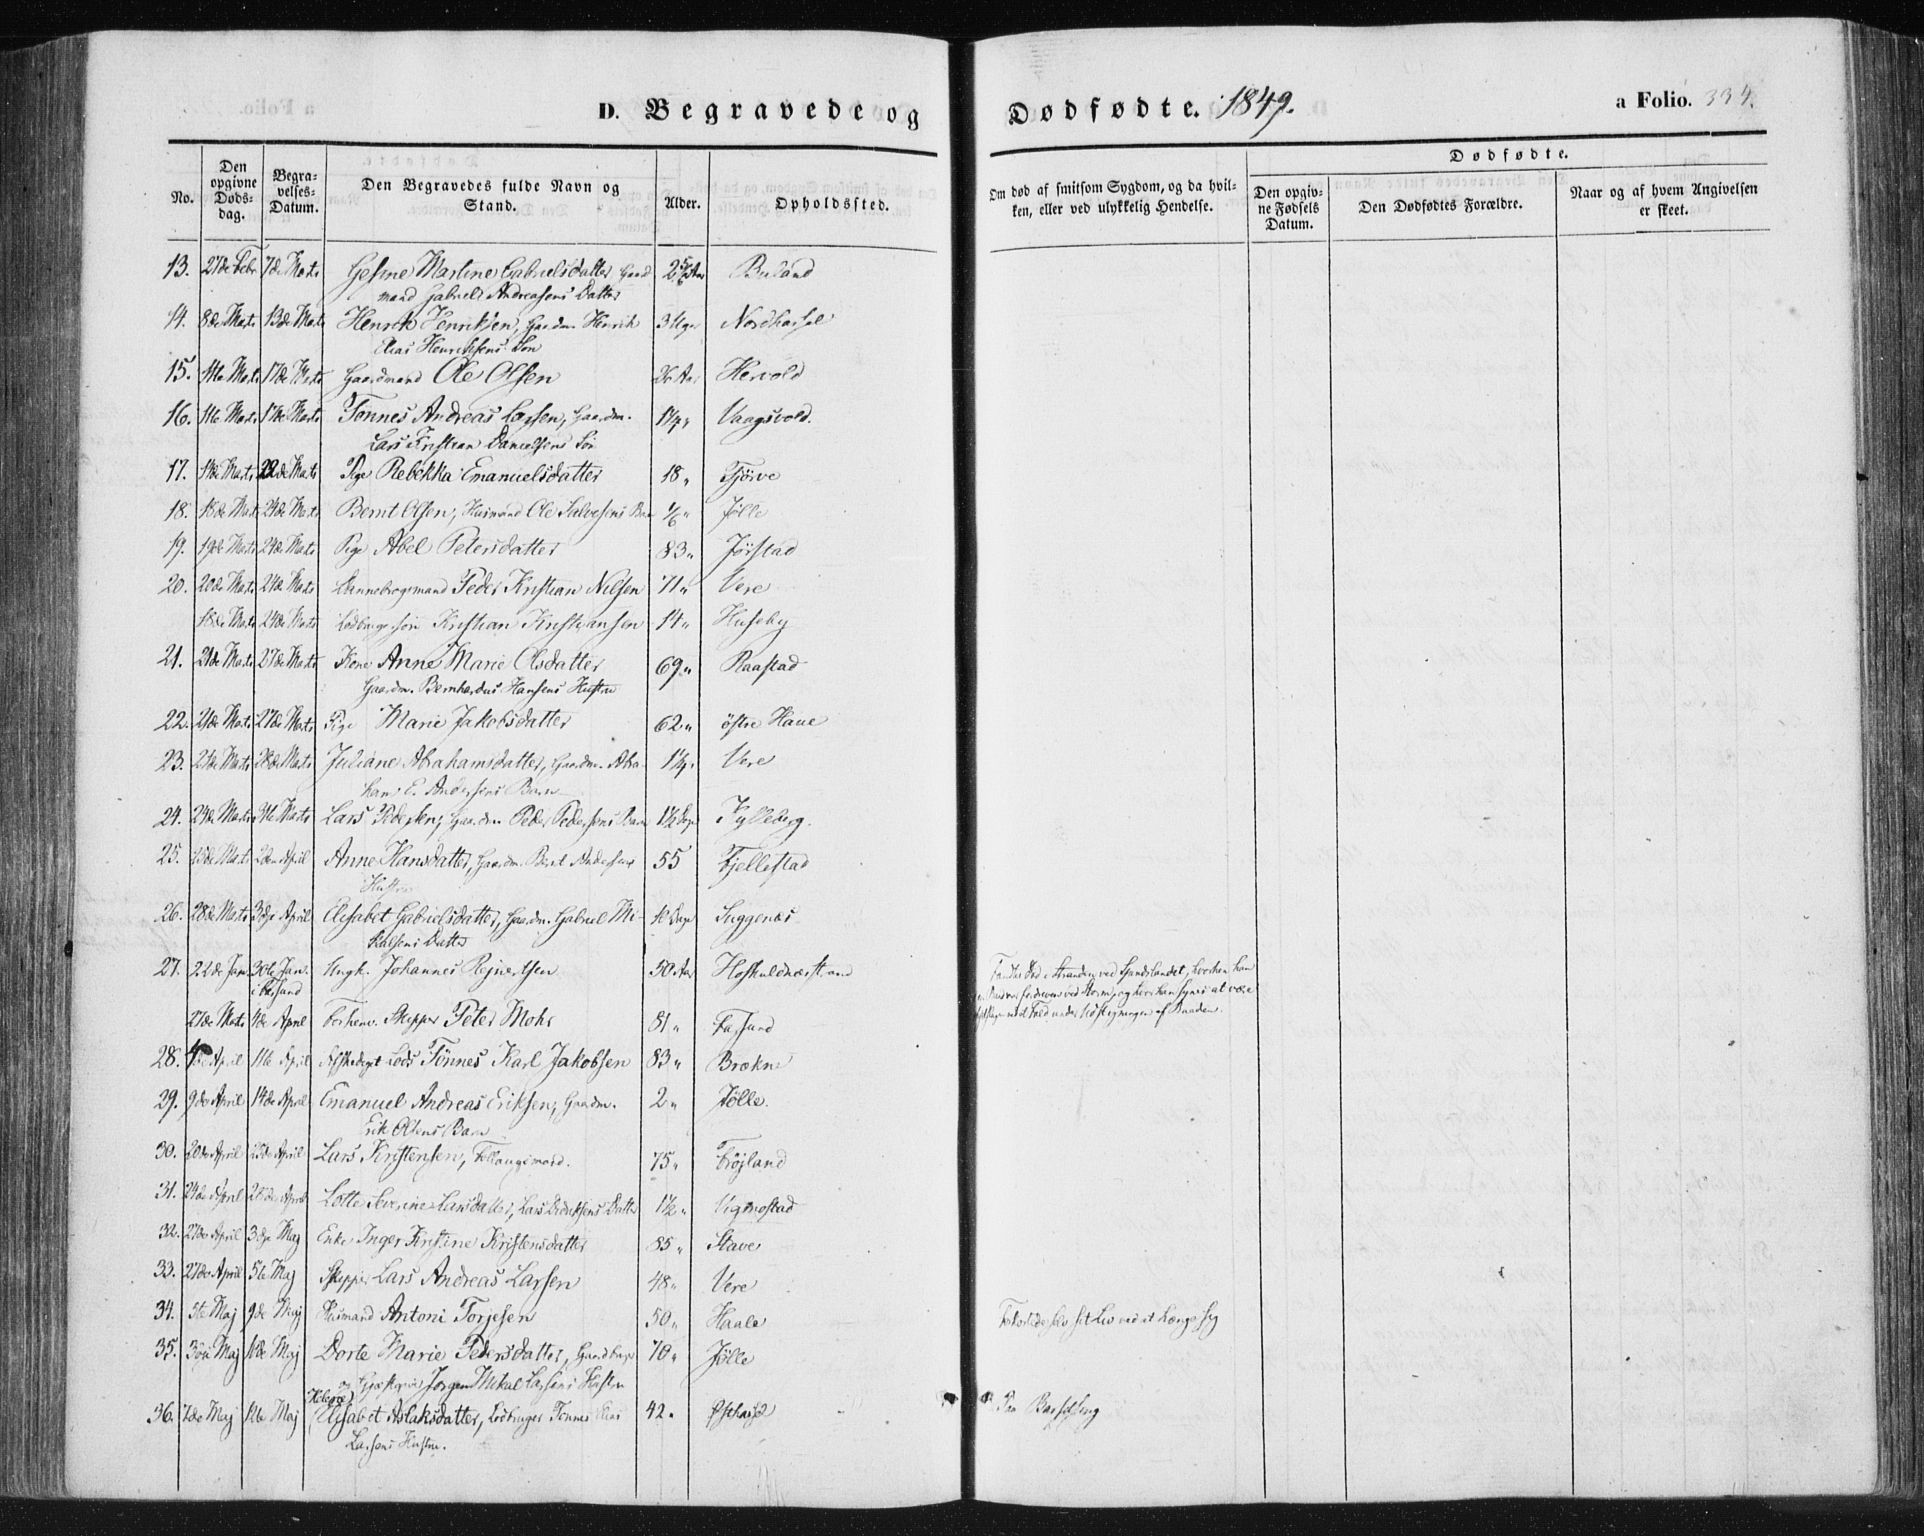 D. Begravede og Dødfødte. 1849. a Folio. 334.
No. Den opgivne Døds-dag. Begra-velses-Datum. Den Begravedes fulde Navn og Stand. Alder. Opholdssted. Om død af smitsom Sygdom, og da hvil-ken, eller ved ulykkelig Hendelse. Dødfødte. Den opgiv-ne Fødsels Datum. Den Dødfødtes Forældre. Naar og af hvem Angivelsen er skeet.
13. 27de Febr 7de Marts Gesine Martine Gabrielsdatter Gaard
mand Gabriel Andreasens Datter Buland
14. 8de Marts 13de Marts Henrik Henriksen, Gaardm. Henrik 3 Uger Nordhassel
Elias Henriksens Søn
15. 11te Marts 17de Marts Gaardmand Ole Olsen 26 Aar Hervold
16. 11te Marts 17de Marts Tønnes Andreas Larsen, Gaardm. Vaagsvold.
Lars Kristian Danielsens Søn
17. 14de Marts 22de Marts Pige Rebekka Emanuelsdatter 18 " Tjörve
18. 18de Marts 24de Marts Bernt Olsen, Husmand Ole Salvesens Barn 1/6 " Jölle
19. 19de Marts 24de Marts Pige Abel Petersdatter 83 " Jörstad
20. 20de Marts 24de Marts Dannebrogsmand Peder Kristian Nilsen 71 " Vere
18de Marts 24de Marts Kristian Kristiansen 14 " Huseby
21. 21de Marts 27de Marts Kone Anne Marie Olsdatter 69 " Raastad
Gaardm. Bernhardus Hansens Hustru
22. 21de Marts 27de Marts Pige Marie Jakobsdatter 62 " östre Haue
23. 21de Marts 28de Marts Juliane Abrahamsdatter, Gaardm. Abra- Vere
ham E. Andersens Barn
24. 24de Marts 31te Marts Lars Pedersen, Gaardm. Peder Pedersens Barn Kylleberg.
25. 25de Marts 2den April Anne Hansdatter, Gaardm. Berent Andersens 55 Fjellestad
Hustru
26. 28de Marts 3die April Elisabet Gabrielsdatter, Gaardm. Gabriel Mi- Dage Siggenes
kalsens Datter
27. 22de Jan. 30te Jan. Ungk. Johannes Rejnertsen 50 Aar
i Farsund
Fandtes død i Stranden ved hvorhen han
ved Storm, og hvor han synes at være
ved Fald under af Baaden.
27de Marts 4de April Forhenv. Skipper Peter Mohr 81 " Farsund
28. April 11te April Afskediget Lods Tönnes Karl Jakobsen 83 " Brekne
29. 9de April 14de April Emanuel Andreas Eriksen, Gaardm. 2 " Jölle.
Erik Olsens Barn
30. 20de April 25de April Lars Kristensen, Föllaugsmand. 75 " Fröjland
31. 24de April April Lotte Severine Larsdatter, Lars Didriksens Datter 1 1/2 " Vigmostad
32. 27de April 3die Maj Enke Inger Kristine Kristensdatter 85 " Stave
33. 27de April 5te Maj Skipper Lars Andreas Larsen 48 " Vere
34. 5te Maj 9de Maj Husmand Antoni Torjesen 50 " Haale Forkortede selv sit Liv ved at hænge sig
35. Maj Maj Dorte Marie Pedersdatter, Gaardbruger 70 " Jölle
og Gjæstgiver Jørgen Mikal Larsens Hustru
36. 7de Maj 12te Maj (Helene) Elisabet Aslaksdatter, Lodbruger Tønnes Elias 42 " Østhassel Paa Barselseng
Larsens Hustru.